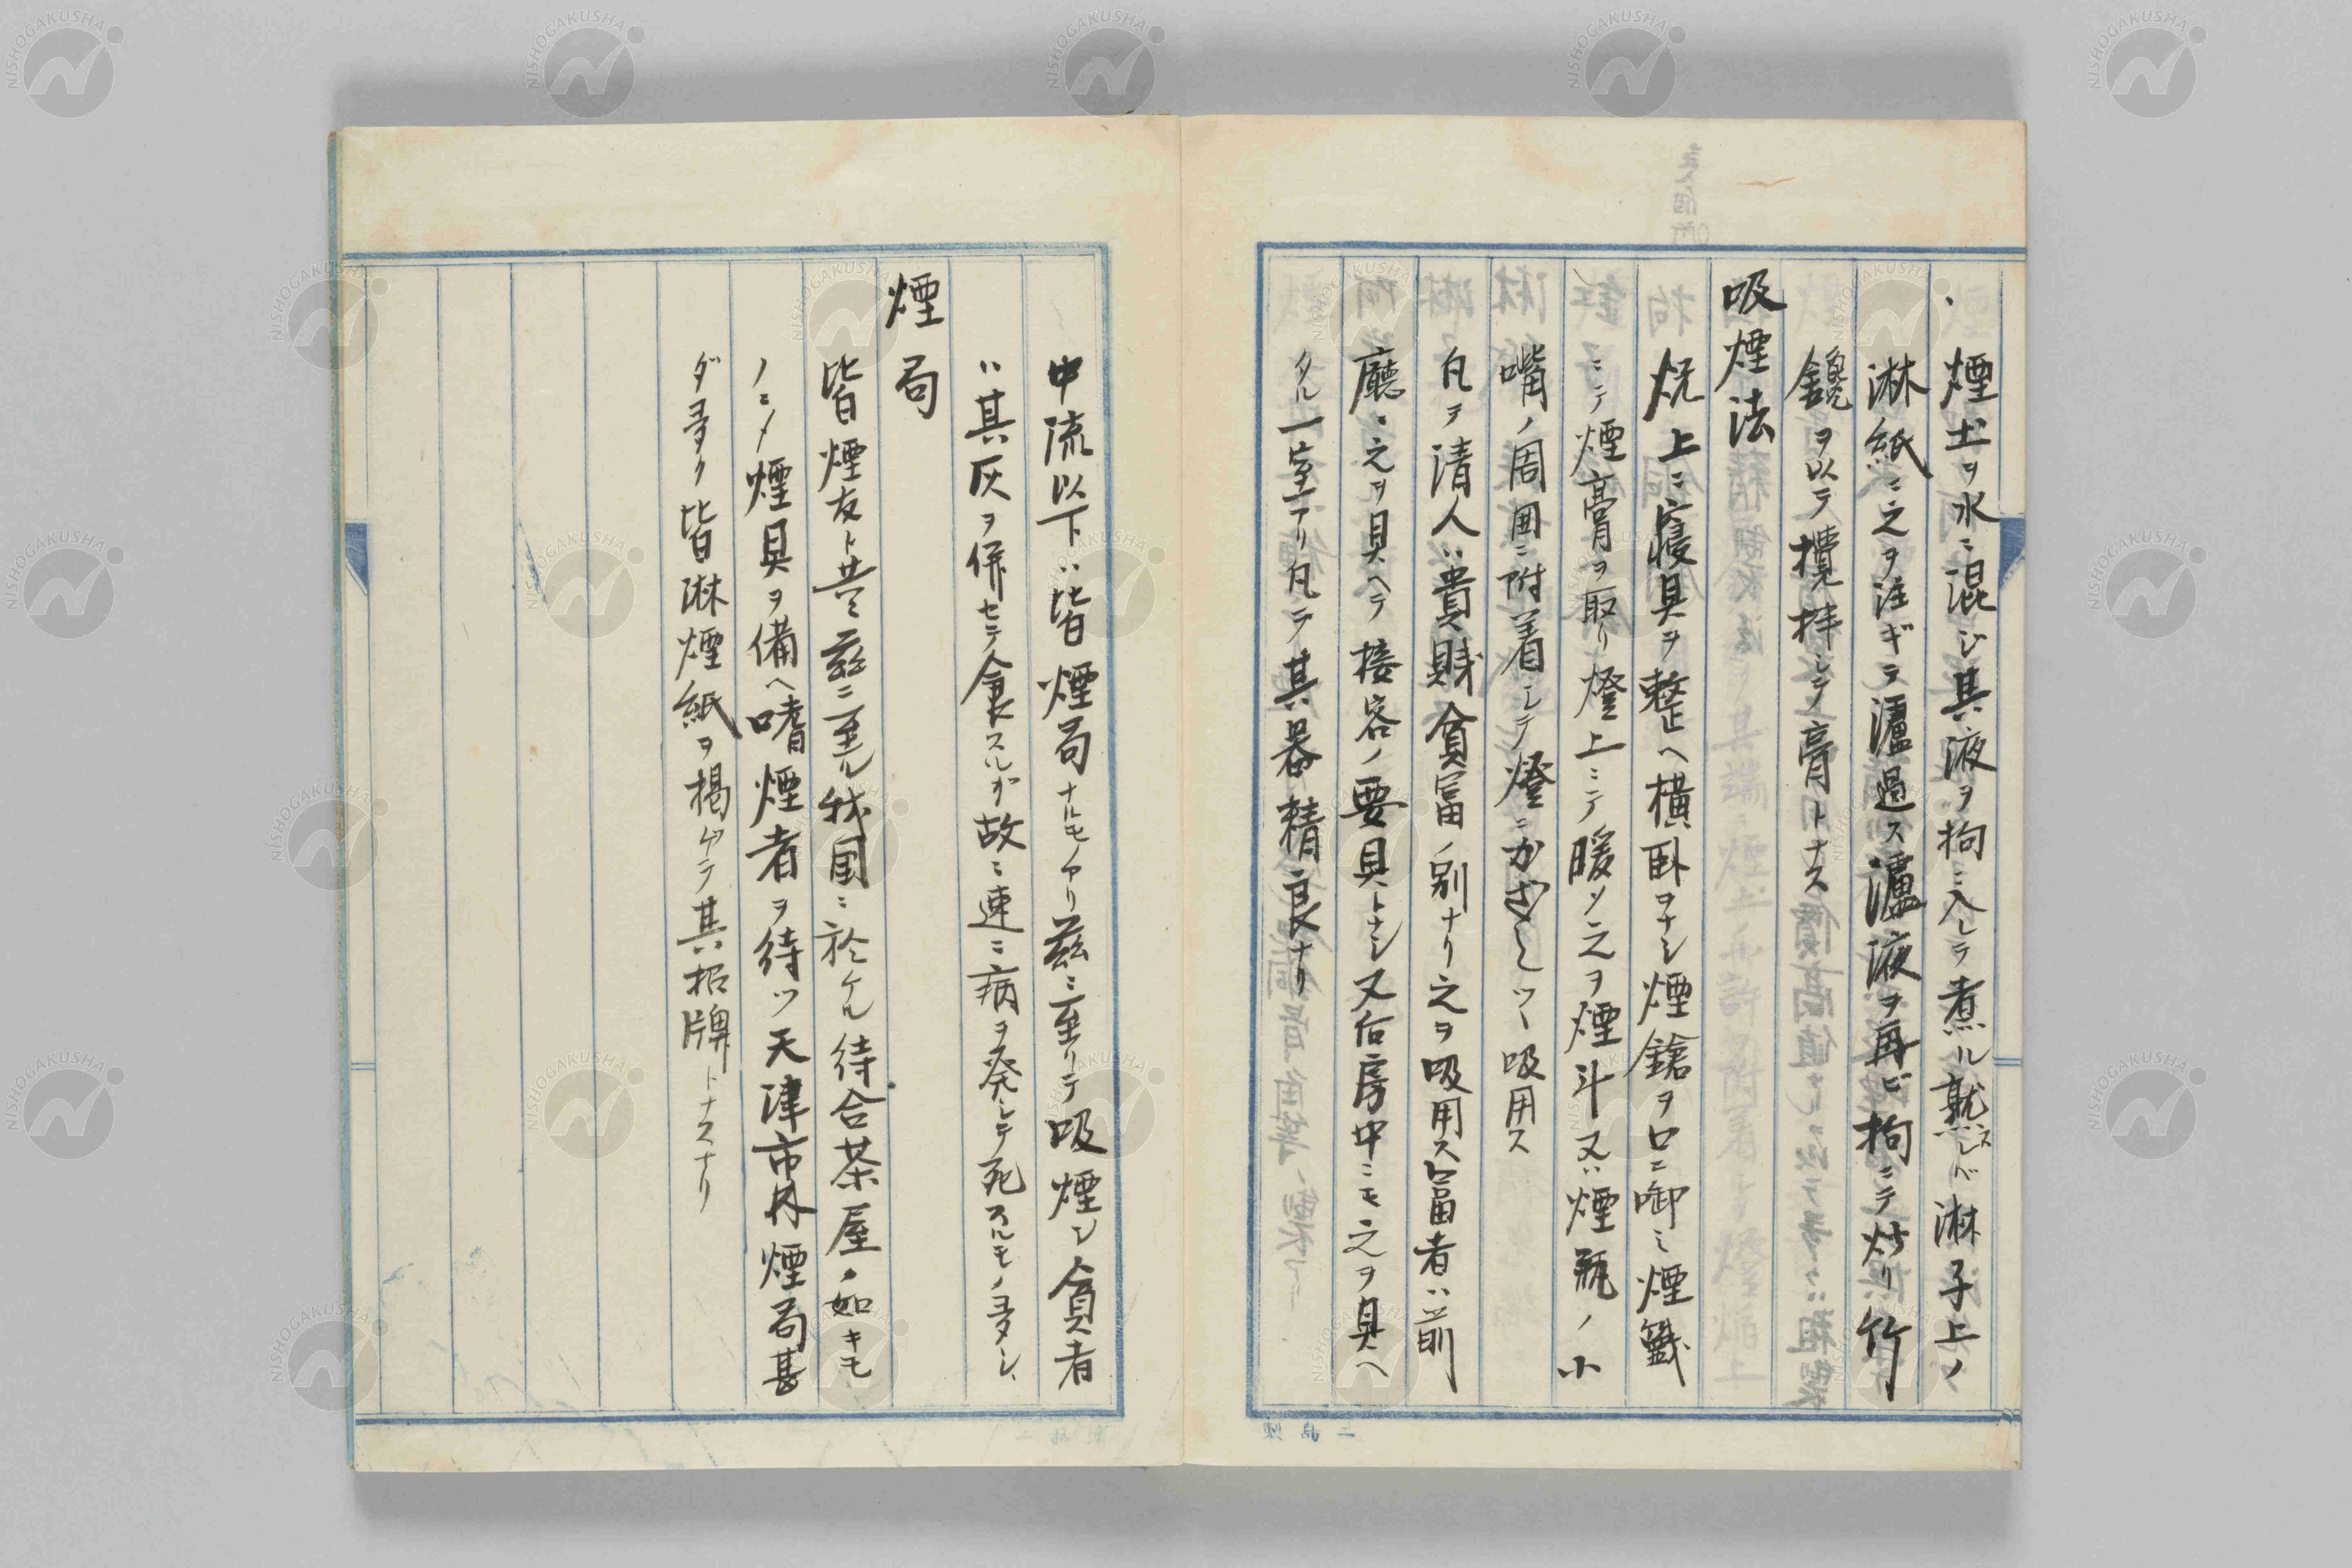 煙土ヲ水ニ混ジ其液ヲ拘ニ入レテ煮ル熟スレバ淋子上ノ
淋紙ニ之ヲ注ギテ濾過ス濾液ヲ再ビ拘ニテ炒リ竹
鏡ヲ以テ攪拌シテ膏トナス
吸煙法
炕上ニ寝具ヲ整ヘ横臥ヲナシ煙鎗ヲ口ニ啣ミ煙籤
ニテ煙膏ヲ取リ燈上ニテ暖ツ之ヲ煙斗又ハ煙瓶ノ小
嘴ノ周囲ニ附着シテ燈ニかざしつヽ吸用ス
凡ヲ清人ハ貴賎貧富ノ別ナリ之ヲ吸用ス富者ハ前
廳ニ之ヲ具ヘテ接客ノ要具トナシ又右房中ニモ之ヲ具ヘ
タル一室アリ凡テ其器精良ナリ
中流以下ハ皆煙局ナルモノアリ茲ニ至リテ吸煙シ貧者
ハ其灰ヲ併セテ食スルガ故ニ速ニ病ヲ発シテ死スルモノ多シ
煙局
皆煙友ト共ニ茲ニ至ル我国ニ於ケル待合茶屋ノ如キモ
ノニメ煙具ヲ備ヘ嗜煙者ヲ待ツ天津市内煙局甚
ダ多ク皆淋煙紙ヲ掲ゲテ其招牌トナスナリ
NISHOGAKUSHA